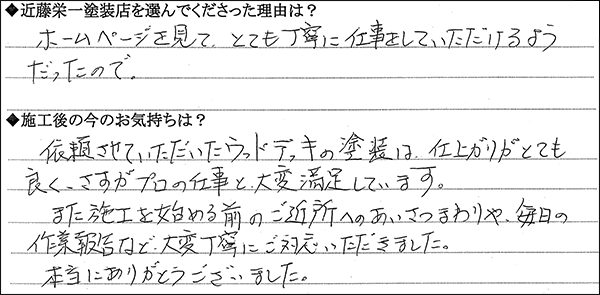 ◆近藤栄一塗装店を選んでくださった理由は？
ホームページを見て、とても丁寧に仕事をしていただけるよう
だったので。
◆施工後の今のお気持ちは？
依頼させていただいたウッドデッキの塗装は、仕上がりがとても
良く、さすがプロの仕事と、大変満足しています。
また施工を始める前のご近所へのあいさつまわりや、毎日の
作業報告など、大変丁寧にご対応いただきました。
本当にありがとうございました。